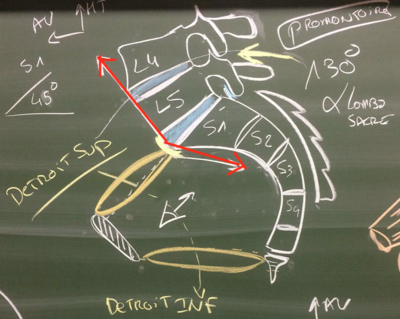 AV
HT
S1
45°
L4
L5
S1
S2
S3
S4
PROMONTOIRE
130°
α LOMBO
SACRÉ
DETROIT SUP
DETROIT INF
AV